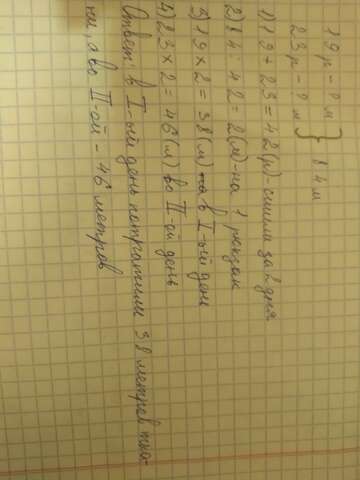 19р - ? м
23р - ? м } 84 м
1) 19 + 23 = 42 (р) - сшили за 2 дня
2) 84 : 42 = 2 (м) - на 1 рюкзак
3) 19 × 2 = 38 (м) в I-ый день
4) 23 × 2 = 46 (м) во II-ой день
Ответ: в I-ый день потратили 38 метров тка-
ни, а во II-ой - 46 метров